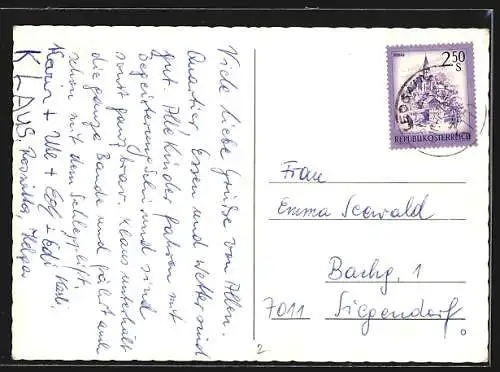 Viele liebe Grüße von Allen.
Quartier, Essen und Wetter sind
gut. Alle Kinder fahren mit
Begeisterung Schi und sind
sonst ganz brav. Klaus unterhält
die ganze Bande und fährt auch
schon mit dem Schlepplift.
Karin + Ule + Edy + Edi Karli,
KLAUS, Roswitha, Helga
2 50
S
REPUBLIK ÖSTERREICH
Frau
Emma Seewald
Bachg. 1
7011 Siegendorf
2